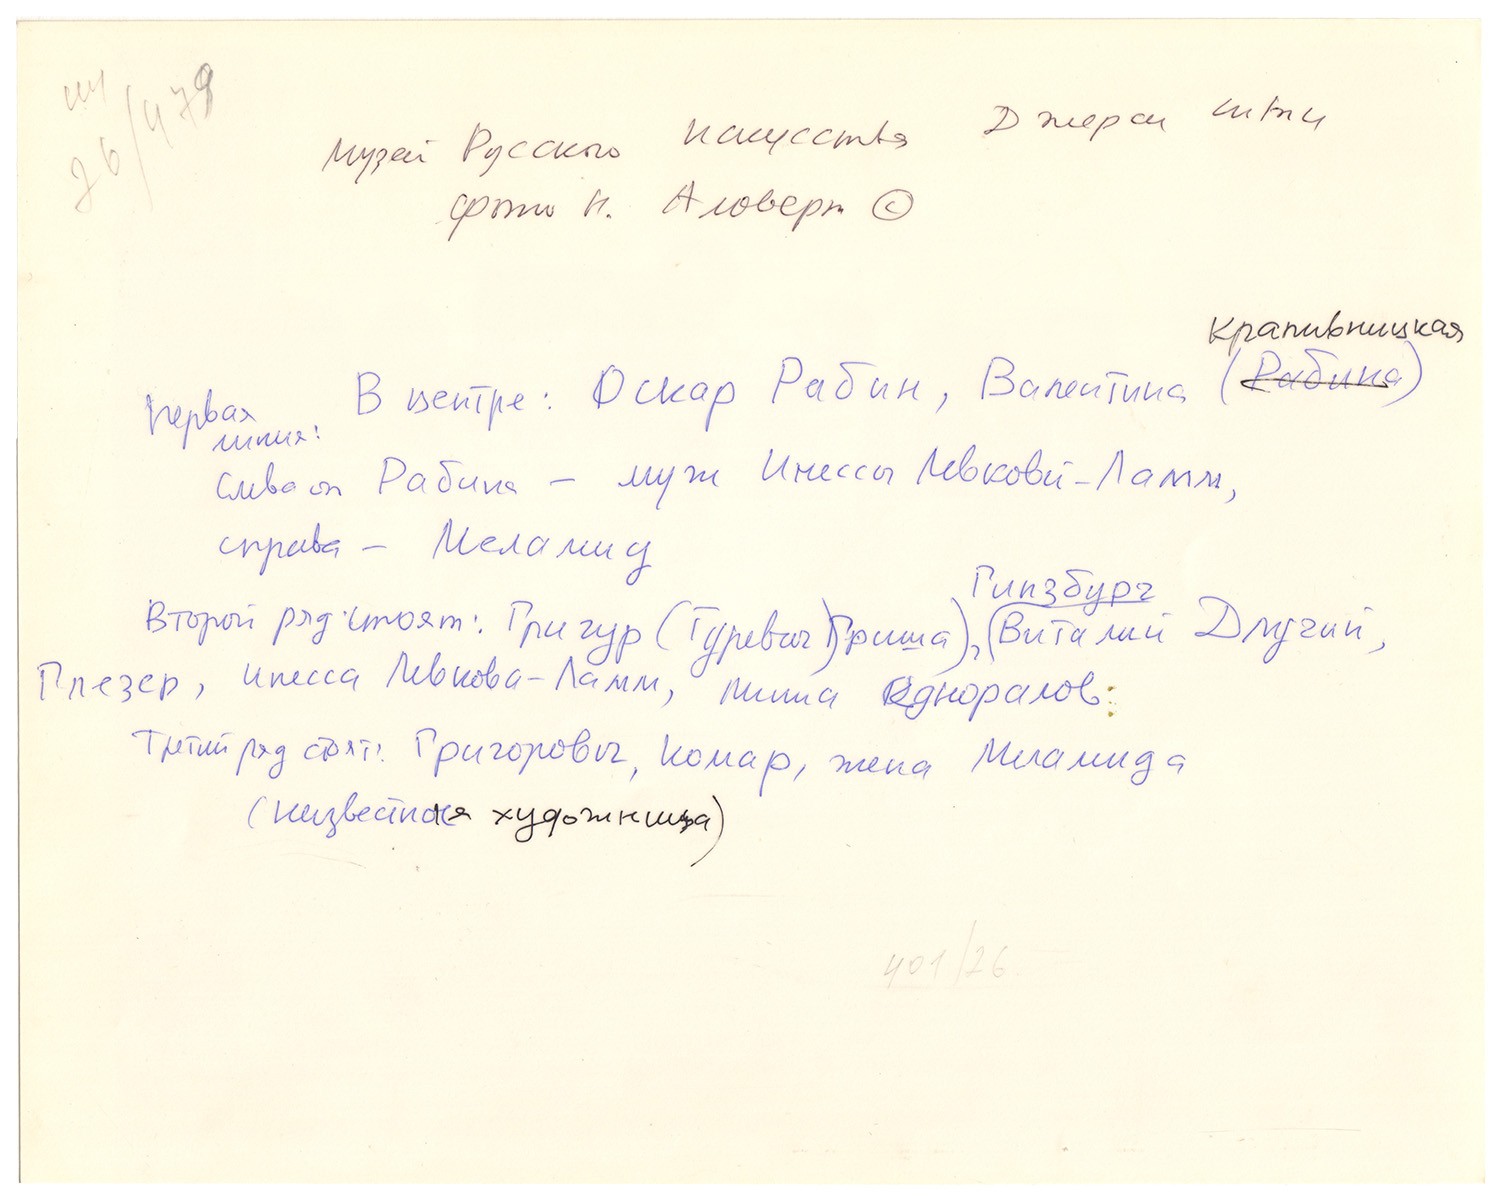 26/479
Музей Русского Искусства Джерси Сити
фото Н. Аловерт ©
Крапивницкая
Первая линия: В центре: Оскар Рабин, Валентина (Рабина)
Слева от Рабина – муж Инессы Левковой-Ламм,
справа – Меламид
Гинзбург
Второй ряд стоят: Григур (Гуревич) Гриша), (Виталий Длугий,
Глезер, Инесса Левкова-Ламм, Миша Одноралов.
Третий ряд стоят: Григорович, Комар, жена Меламида
(неизвестная художница)
401/26